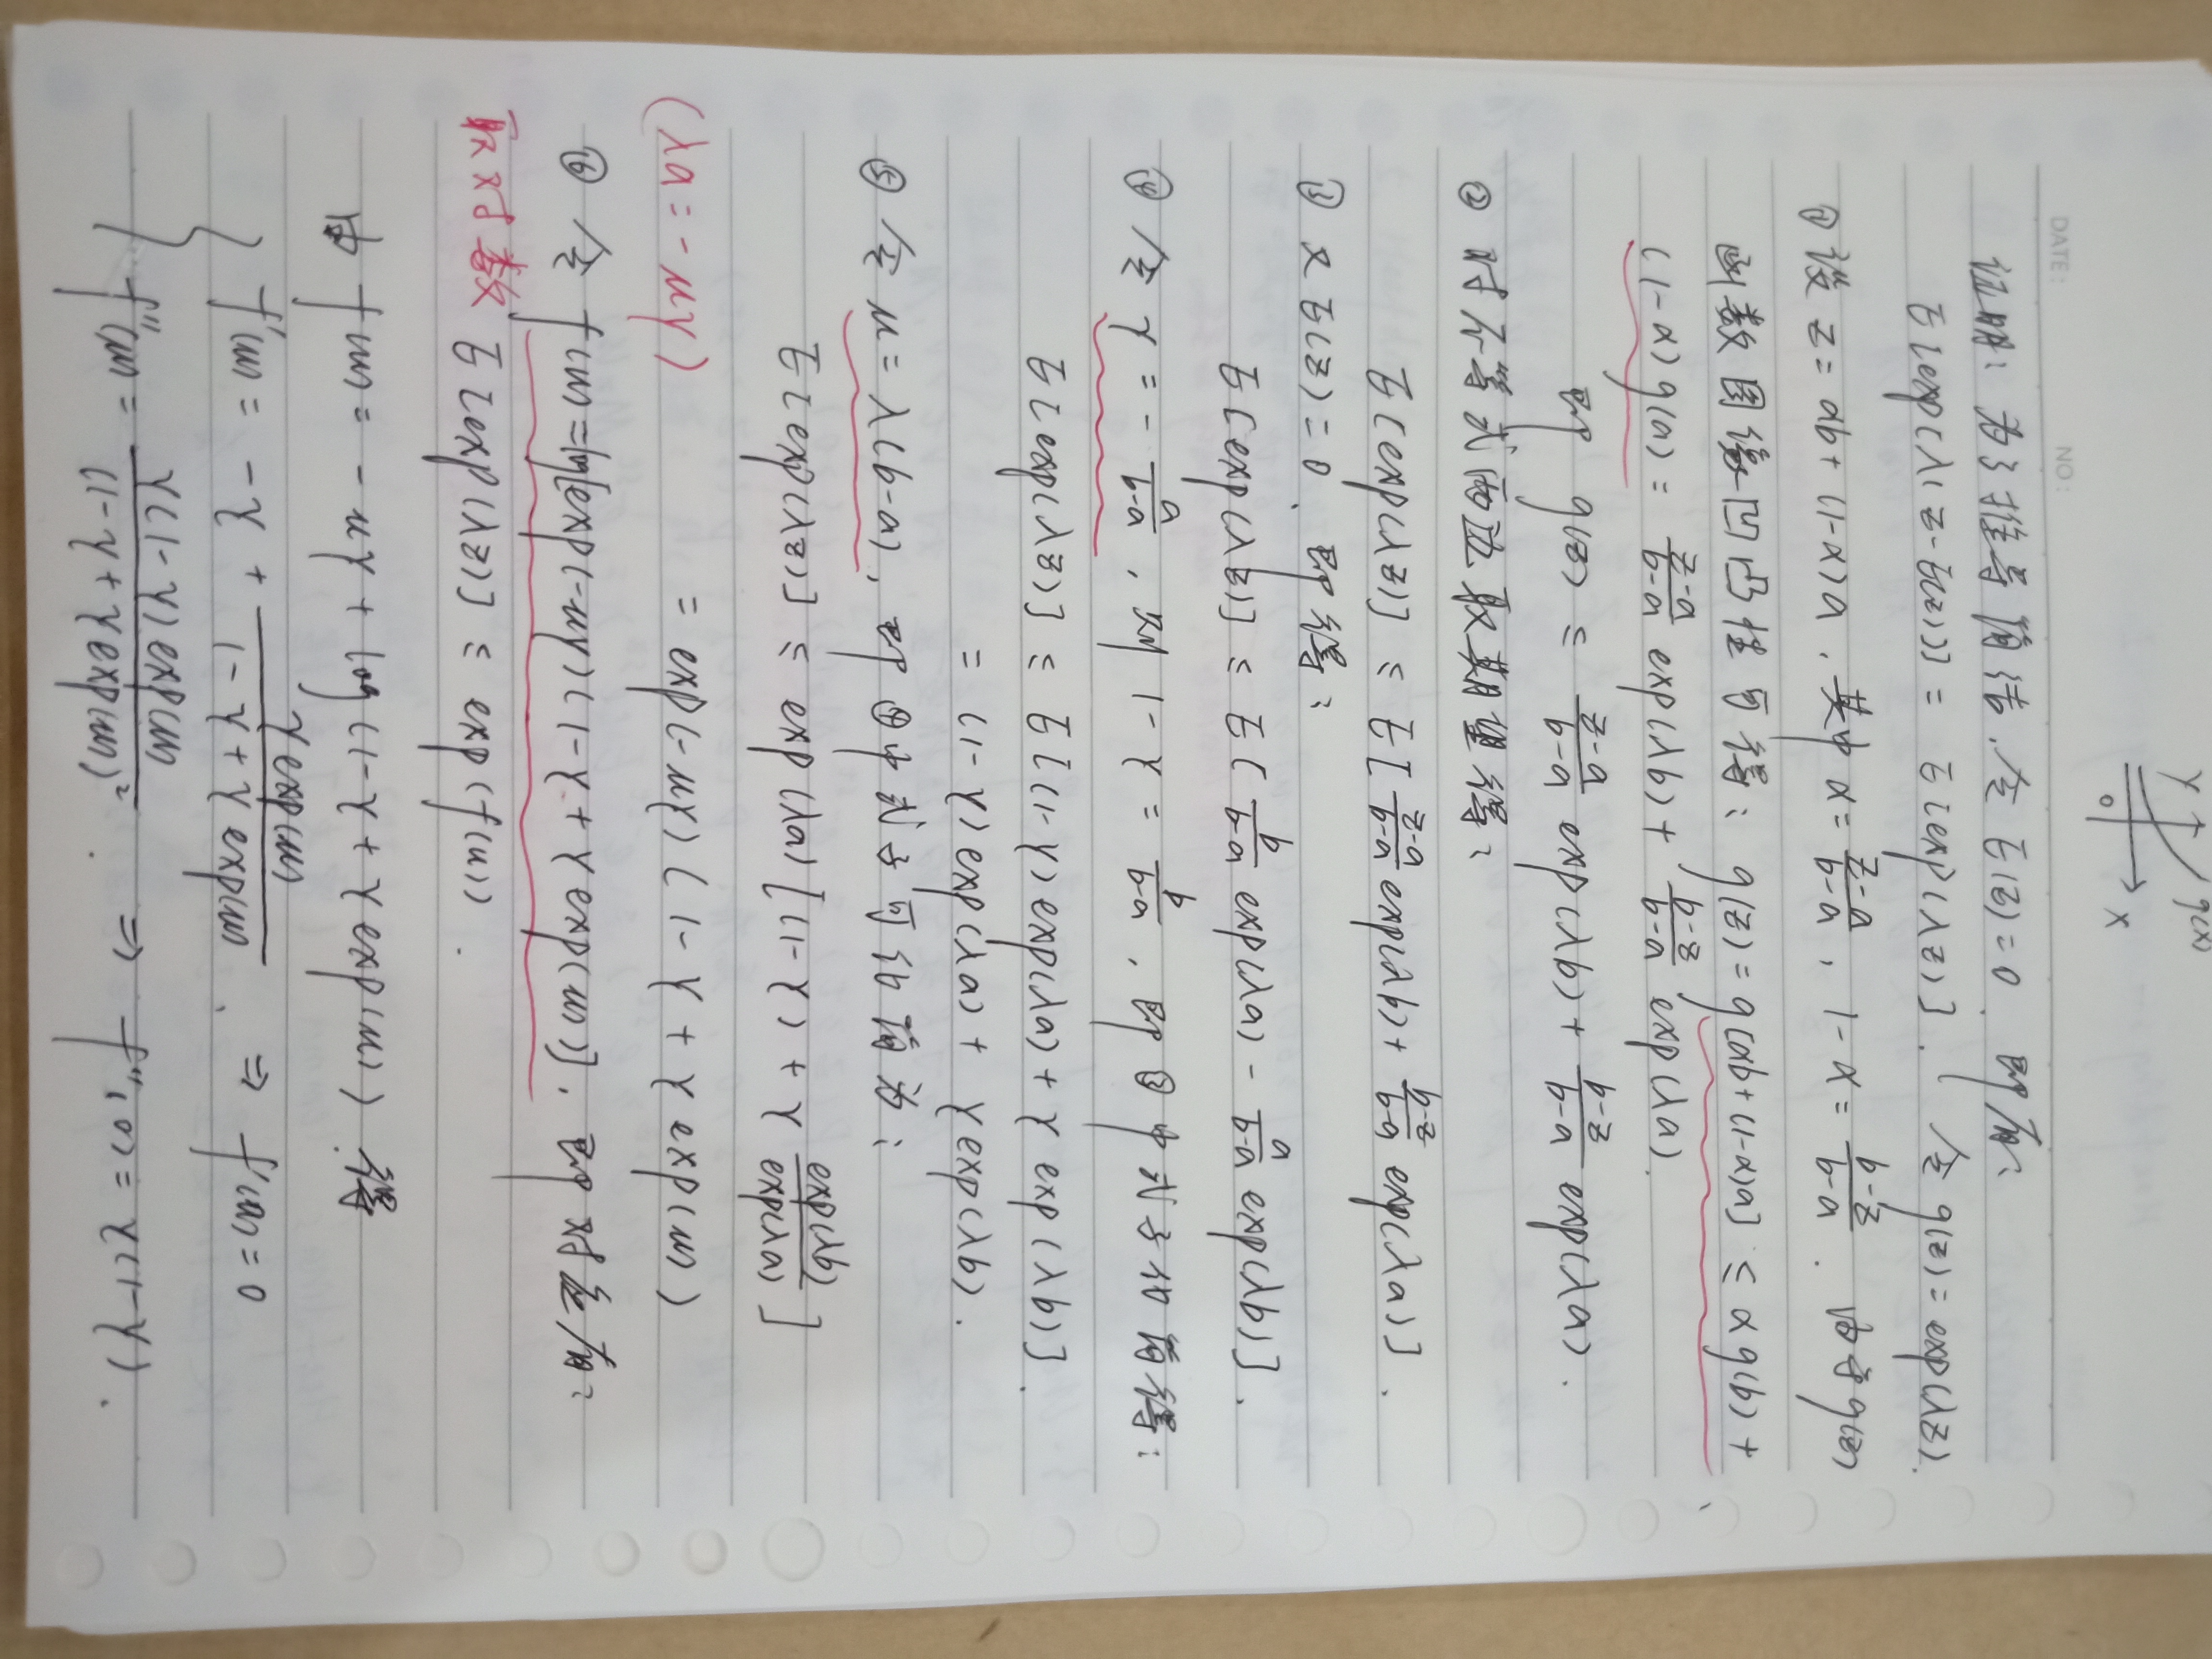 y g(x)
0 x
DATE: NO:
证明：为了推导简洁，令 E(z)=0，即有：
E[exp(λ(z-E(z)))] = E[exp(λz)]. 令 g(z)=exp(λz).
① 设 z=αb+(1-α)a，其中 α=\frac{z-a}{b-a}，1-α=\frac{b-z}{b-a}. 由于g(z)
函数图像凹凸性可得：g(z)=g[αb+(1-α)a] ≤ αg(b)+
(1-α)g(a) = \frac{z-a}{b-a} exp(λb) + \frac{b-z}{b-a} exp(λa).
即 g(z) ≤ \frac{z-a}{b-a} exp(λb) + \frac{b-z}{b-a} exp(λa).
② 对不等式两边取期望得：
E[exp(λz)] ≤ E[\frac{z-a}{b-a} exp(λb) + \frac{b-z}{b-a} exp(λa)].
③ 又E(z)=0，即得：
E[exp(λz)] ≤ E[\frac{b}{b-a} exp(λa) - \frac{a}{b-a} exp(λb)].
④ 令 γ = -\frac{a}{b-a}，则 1-γ = \frac{b}{b-a}，即③中式子化简得：
E[exp(λz)] ≤ E[(1-γ)exp(λa) + γ exp(λb)].
= (1-γ)exp(λa) + γexp(λb).
⑤ 令 u=λ(b-a)，即④中式子可化简为：
E[exp(λz)] ≤ exp(λa)[(1-γ) + γ \frac{exp(λb)}{exp(λa)}]
(λa=-uγ) = exp(-uγ)(1-γ+γ exp(u))
⑥ 令 f(u)=log[exp(-uγ)(1-γ+γexp(u))]，即对应有：
取对数 E[exp(λz)] ≤ exp(f(u)).
由 f(u) = -uγ + log(1-γ+γexp(u)) 得
f'(u) = -γ + \frac{γexp(u)}{1-γ+γexp(u)}. ⇒ f'(0)=0
f''(u) = \frac{γ(1-γ)exp(u)}{(1-γ+γexp(u))^2}. ⇒ f''(0)=γ(1-γ).